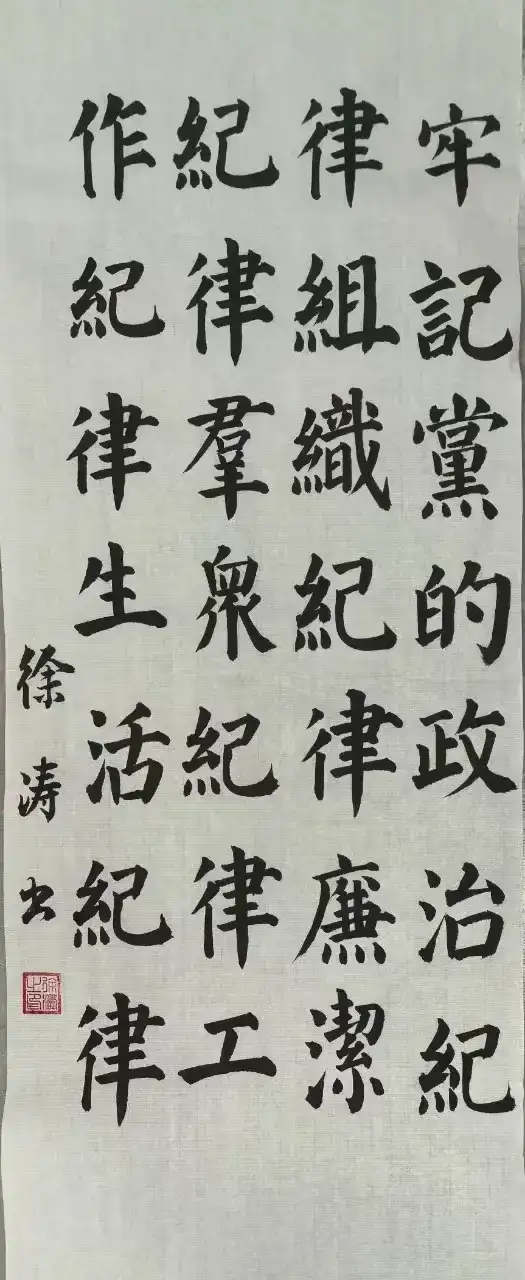 牢記黨的政治紀
律組織紀律廉潔
紀律羣衆紀律工
作紀律生活紀律
徐涛书